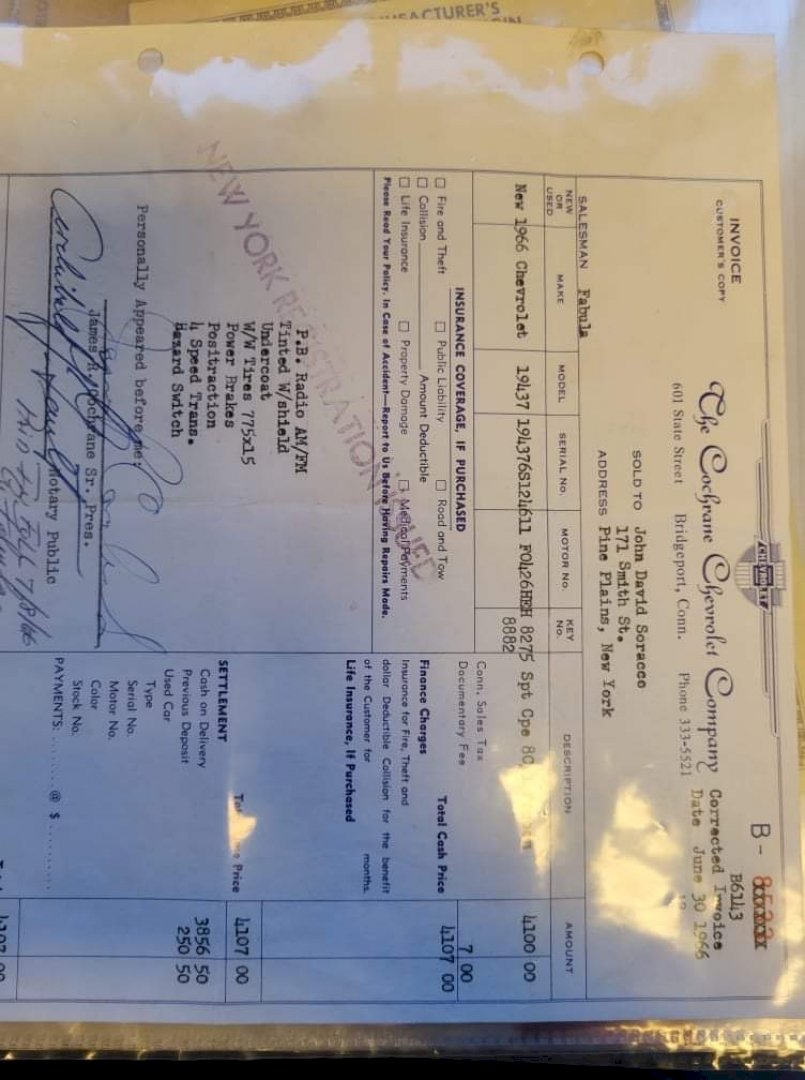 ACTURER'S
CHEVROLET
INVOICE
CUSTOMER'S COPY
The Cochrane Chevrolet Company
601 State Street Bridgeport, Conn. Phone 333-5521
B-
B6143
Corrected Invoice
Date June 30 1966
SOLD TO John David Soracco
171 Smith St.
ADDRESS Pine Plains, New York
SALESMAN Fabula
NEW OR USED MAKE MODEL SERIAL NO. MOTOR NO. KEY No. DESCRIPTION AMOUNT
New 1966 Chevrolet 19437 194376S124611 F0426HEH 8275 Spt Cpe 4100 00
8882
INSURANCE COVERAGE, IF PURCHASED
☐ Fire and Theft ☐ Public Liability ☐ Road and Tow
☐ Collision Amount Deductible
☐ Life Insurance ☐ Property Damage ☐ Medical Payments
Please Read Your Policy. In Case of Accident—Report to Us Before Having Repairs Made.
Conn. Sales Tax
Documentary Fee 7 00
Total Cash Price 4107 00
Finance Charges
Insurance for Fire, Theft and
dollar Deductible Collision for the benefit
of the Customer for months.
Life Insurance, If Purchased
Price 4107 00
SETTLEMENT
Cash on Delivery 3856 50
Previous Deposit 250 50
Used Car
Type
Serial No.
Motor No.
Color
Stock No.
PAYMENTS: @ $
4107 00
NEW YORK REGISTRATION ISSUED
P.B. Radio AM/FM
Tinted W/shield
Undercoat
W/W Tires 775x15
Power Brakes
Positraction
4 Speed Trans.
Hazard Switch
Personally Appeared before me:
James R. Cochrane Sr. Pres.
Notary Public
7/8/66